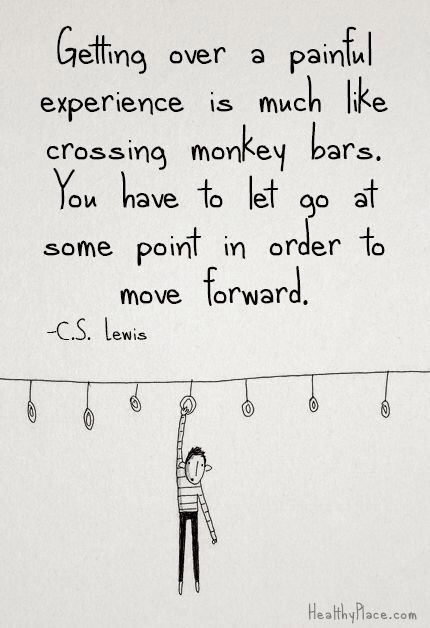 Getting over a painful
experience is much like
crossing monkey bars.
You have to let go at
some point in order to
move forward.
-C.S. Lewis
HealthyPlace.com